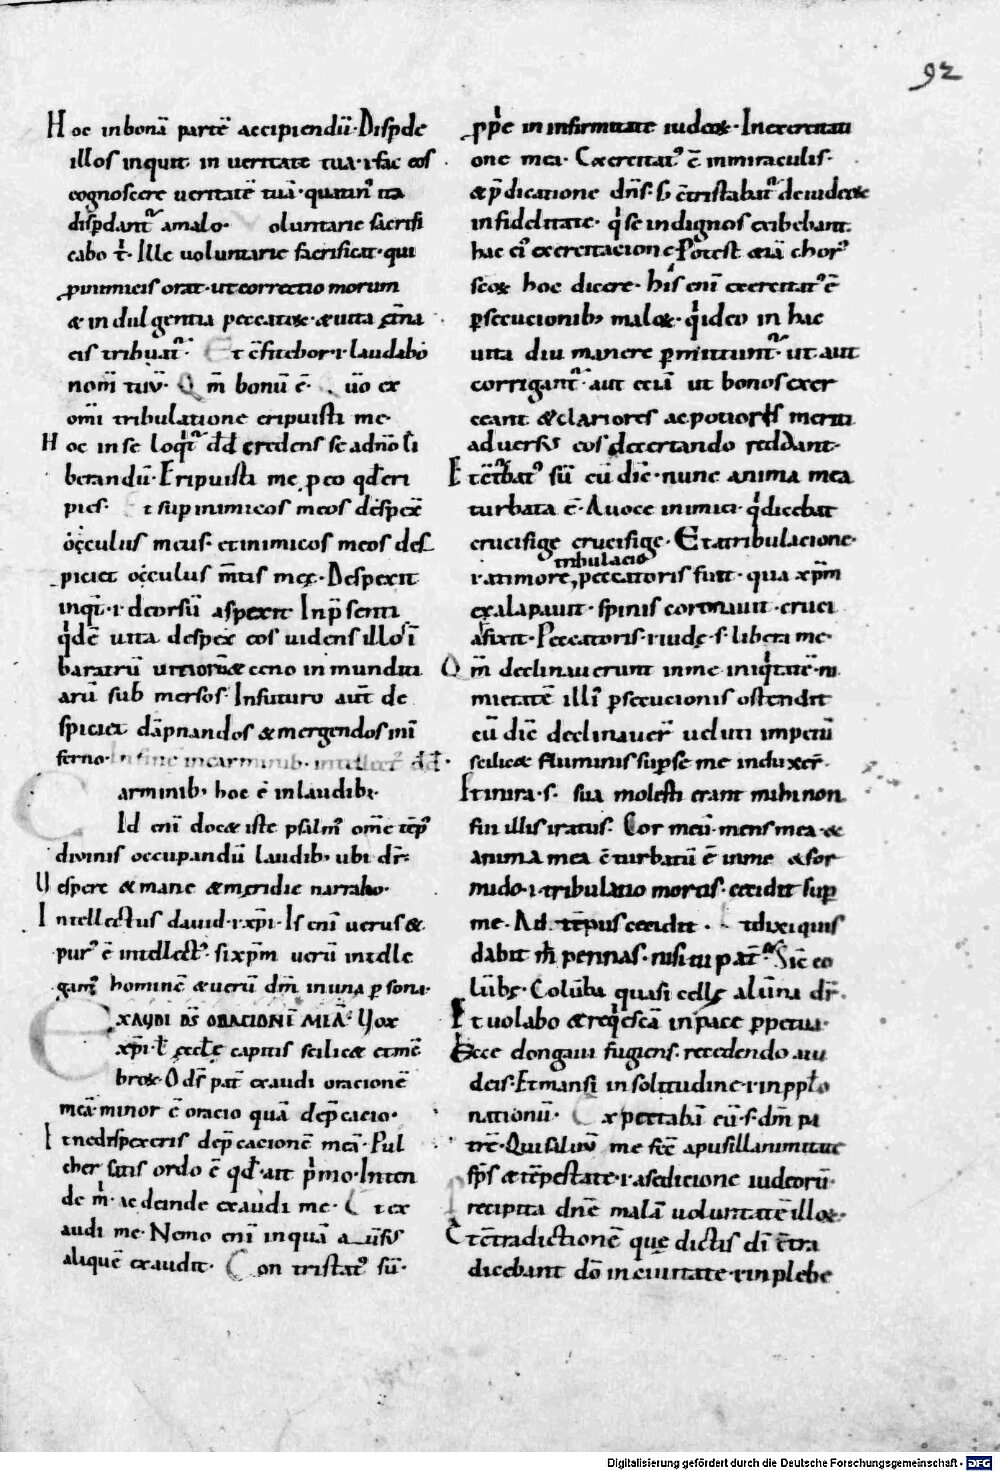 92
Hoc inbonā partē accipiendū. Disp̄de
illos inquit in ueritate tua. i. fac eos
cognoscere ueritatē tuā. quatin᷒ ita
disp̄dant᷑ amalo. Voluntarie sacrifi
cabo t. Ille uoluntarie sacrificat. qui
ꝓinimicis orat. ut correctio morum
& indulgentia peccatoꝝ. & uita etn̄a
eis tribuat᷑. Et c̄fitebor. i. laudabo
nom̄ tuū. Qm̄ bonū ē. Qm̄ ex
om̄i tribulatione eripuisti me.
Hoc inse loqit᷑ dd̄ credens se adn̄o li
berandū. Eripuisti me ꝓ eo qd̄ eri
pies. Et sup inimicos meos desp̄ex̄
occulus meus. et inimicos meos des
piciet occulus m̄tis meę. Despexit
inqͥt. i. deorsū aspexit In p̄senti
qͥdē uita despex̄ eos uidens illos ī
baratrū uitioꝝ & ceno inmundici
arū sub mersos. Infuturo aut̄ de
spiciet dāpnandos & mergendos inī
ferno. In finē incarminib. intellect᷒ dd̄.
Carminib᷒ hoc ē inlaudibꝫ.
Id eni docet iste psalm᷒ om̄e tēp᷒
diuinis occupandū laudib᷒ ubi dr̄:
Vespere & mane & meridie narrabo.
Intellectus dauid. i. xp̄i. Is eni uerus &
pur᷒ ē intellect᷒. si xp̄m uerū intelle
gam᷒ hominē & uerū dm̄ in una ꝑsona.
EXAUDI DS̄ ORATIONĒ MEĀ. Uox
xp̄i. ł ęccłę capitis scilicet et mē
broꝝ. O ds̄ pat̄ exaudi oracionē
meā. minor ē oracio quā dep̄cacio.
Et nedispexeris dep̄cacionē meā. Pul
cher satis ordo ē qd̄. ait p̄mo. Inten
de m̄ ac deinde exaudi me. Et ex
audi me. Nemo eni inquā auersus
aliquē exaudit. Con tristat᷒ sū.
ꝓpͥe in infirmitate iudeoꝝ. In exercitati
one mea. Exercitat᷒ ē in miraculis.
& p̄dicatione dn̄s. s c̄tristabat᷑ de iudeoꝝ
infidelitate. qͥ se indignos exibebant.
hac ei᷒ exercitacione Potest etiā chor᷒
scoꝝ hoc dicere. his eni exercitat᷒ ē
ꝑsecucionib᷒ maloꝝ. qͥ ideo in hac
uita diu manere ꝑmittunt᷑. ut aut
corrigant᷑. aut etiā ut bonos exer
ceant & clariores ac potiores meriti
aduersus eos decertando reddant.
Et c̄turbat᷒ sū cū dic̄. nunc anima mea
turbata ē. A uoce inimici. qͥ dicebat
crucifige crucifige. Et a tribulacione
tribulacio
i. a timore, peccatoris fuit. qua xp̄m
exalapauit. spinis coronauit. cruci
afixit. Peccatoris. i. iudę. s. libera me.
Qm̄ declinauerunt in me iniqͥtatē. ni
mietatē illi᷒ ꝑsecucionis ostendit
cū dic̄ declinauer̄ ueluti impetū
scilicet fluminis sup se me induxer̄.
Et in ira. s. sua molesti erant mihi non
sin illis iratus. Cor meū. mens mea. &
anima mea c̄turbatū ē in me & for
mido. i. tribulatio mortis. cecidit sup
me. Ad. tēpus cecidit. Et dixi quis
dabit m̄ pennas. nisi tu pat̄. Sic̄ co
lūbę. Colūba quasi cellę alūna dr̄.
Et uolabo & reqͥescā in pace ꝑpetua.
Ecce elongaui fugiens. recedendo a iu
deis. Et mansi in solitudine. i. in ppło
nationū. Expectabā eū. s. dm̄ pa
trē. Qui saluū me fec̄ a pusillanimitate
sps̄ & tēpestate. i. a sedicione iudeorū.
Precipita dn̄e malā uoluntatē illoꝝ.
Et c̄tradictionē que dictis di c̄tra
dicebant do in ciuitate. i. in plebe
Digitalisierung gefördert durch die Deutsche Forschungsgemeinschaft - DFG